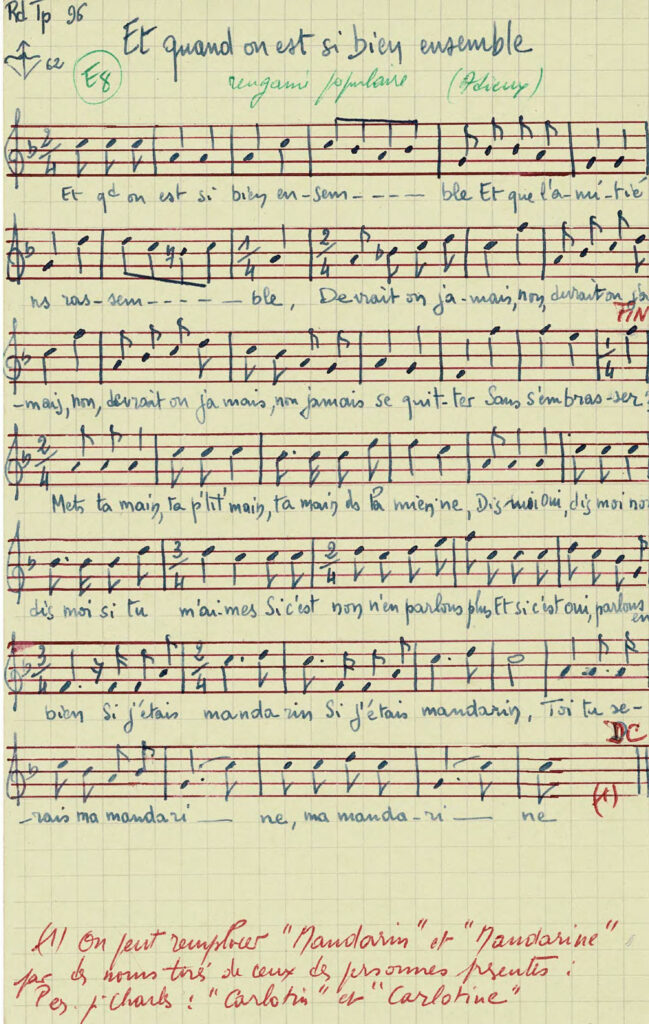 Rd Tp 96
62
E8
Et quand on est si bien ensemble
rengaine populaire (Adieux)
2/4
Et qd on est si bien en-sem- - - - - ble Et que l'a-mi-tié
1/4 2/4
ns ras-sem- - - - - - ble, Devrait on ja-mais, non, devrait on ja
FIN
1/4
-mais, non, devrait on ja mais, non jamais se quit-ter Sans s'em bras-ser?
2/4
Mets ta main, ta p'tit' main, ta main ds la mien'ne, Dis moi oui, dis moi non
3/4 2/4
dis moi si tu m'ai-mes Si c'est non n'en parlons plus Et si c'est oui, parlons en
3/4 2/4
bien Si j'étais mandarin Si j'étais mandarin, Toi tu se-
DC
-rais ma mandari — ne, ma manda-ri — ne
(1)
(1) On peut remplacer "Mandarin" et "Mandarine"
par des noms tirés de ceux des personnes présentes :
P ex. pr Charles : "Carlotin" et "Carlotine"